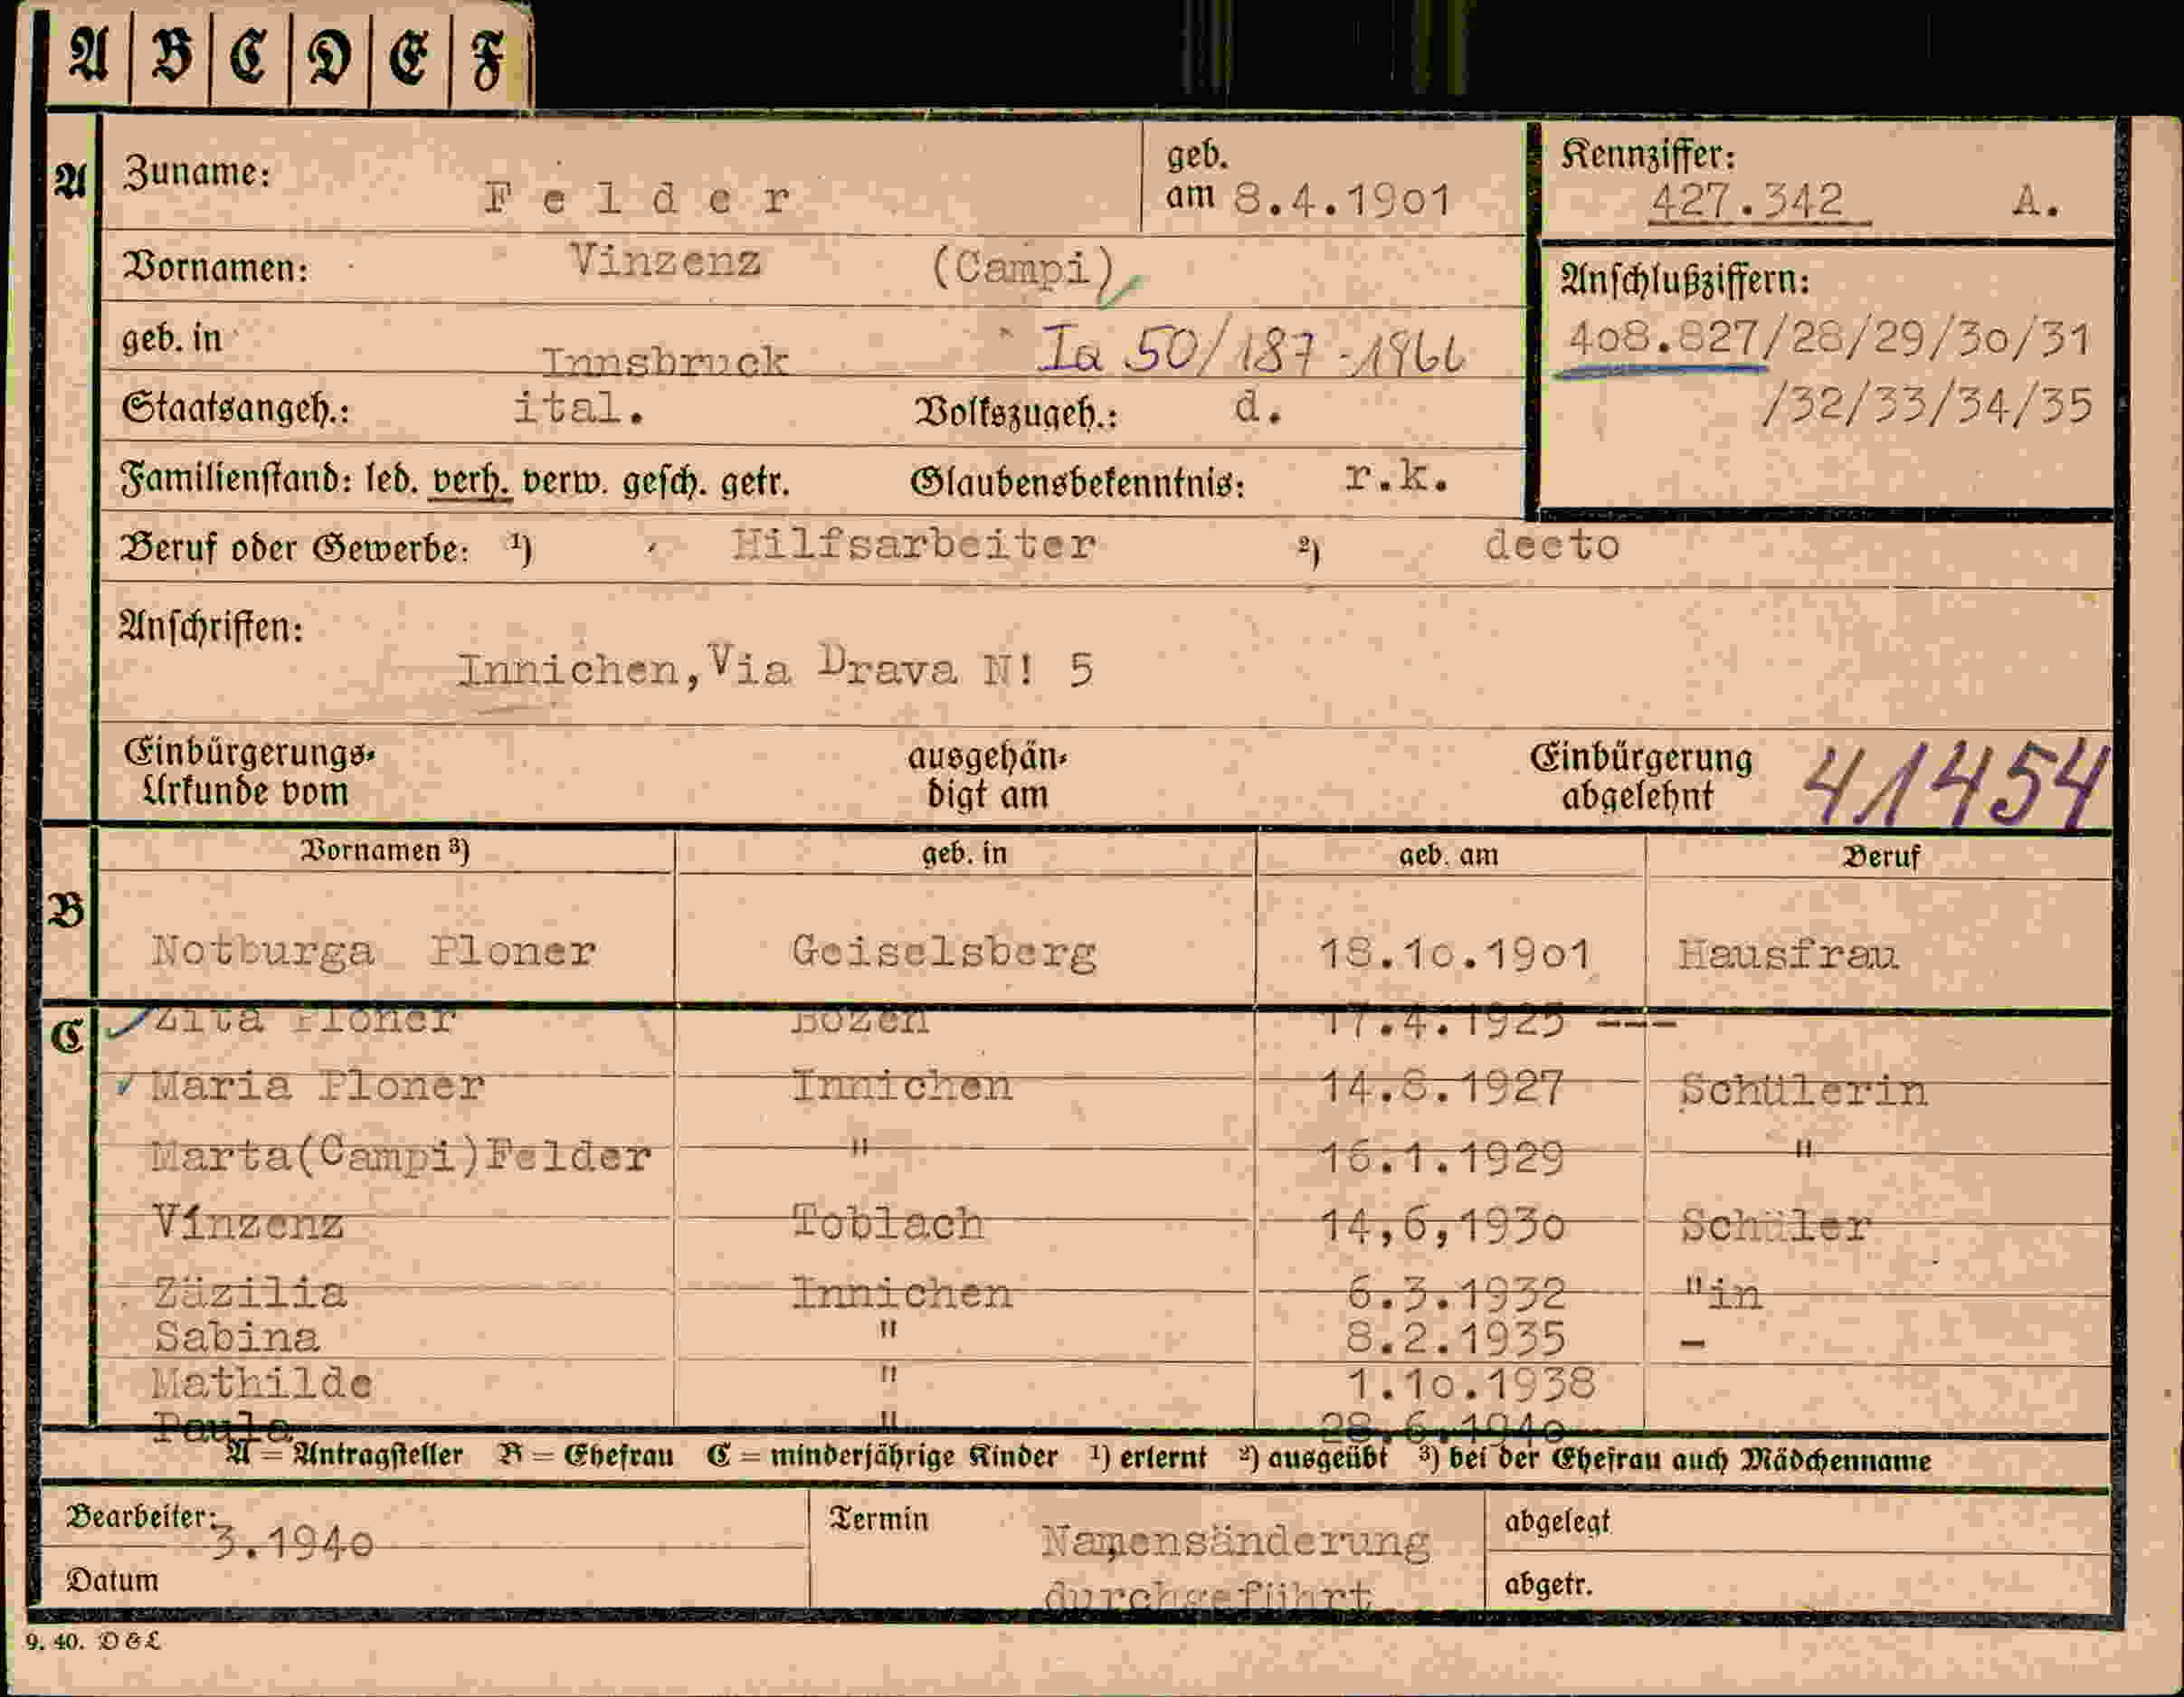 A B C D E F
A Zuname: Felder geb. am 8.4.1901 Kennziffer: 427.342 A.
Vornamen: Vinzenz (Campi) Anschlußziffern:
geb. in Innsbruck Ia 50/187-1966 408.827/28/29/30/31
Staatsangeh.: ital. Volkszugeh.: d. /32/33/34/35
Familienstand: led. verh. verw. gesch. getr. Glaubensbekenntnis: r.k.
Beruf oder Gewerbe: ¹) Hilfsarbeiter ²) deeto
Anschriften:
Innichen, Via Drava N! 5
Einbürgerungs- ausgehän- Einbürgerung 41454
Urkunde vom digt am abgelehnt
Vornamen ³) geb. in geb. am Beruf
B
Notburga Ploner Geiselsberg 18.10.1901 Hausfrau
C Zita Ploner Bozen 17.4.1925 ---
Maria Ploner Innichen 14.8.1927 Schülerin
Marta(Campi)Felder " 16.1.1929 "
Vinzenz Toblach 14,6,1930 Schüler
Zäzilia Innichen 6.3.1932 "in
Sabina " 8.2.1935 -
Mathilde " 1.10.1938
Paula " 28.6.1940
A = Antragsteller B = Ehefrau C = minderjährige Kinder ¹) erlernt ²) ausgeübt ³) bei der Ehefrau auch Mädchenname
Bearbeiter: 3.1940 Termin Namensänderung abgelegt
Datum durchgeführt abgetr.
9. 40. D & L